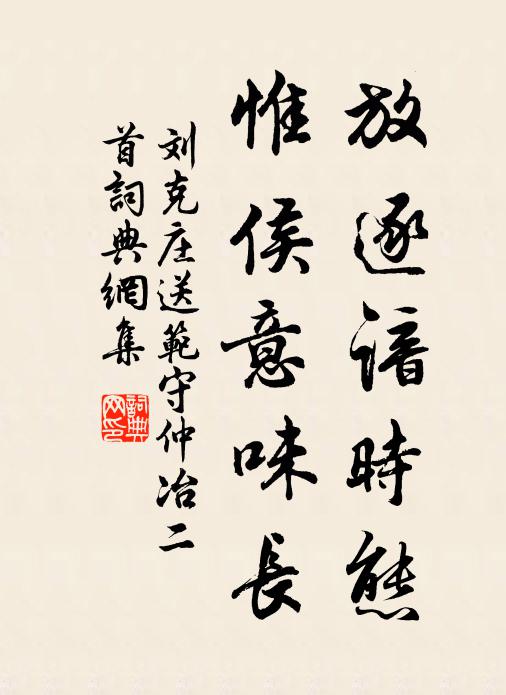 放逐谙時態
惟侯意味長
刘克庄送範守仲冶二
首詞典網集
詞典网印